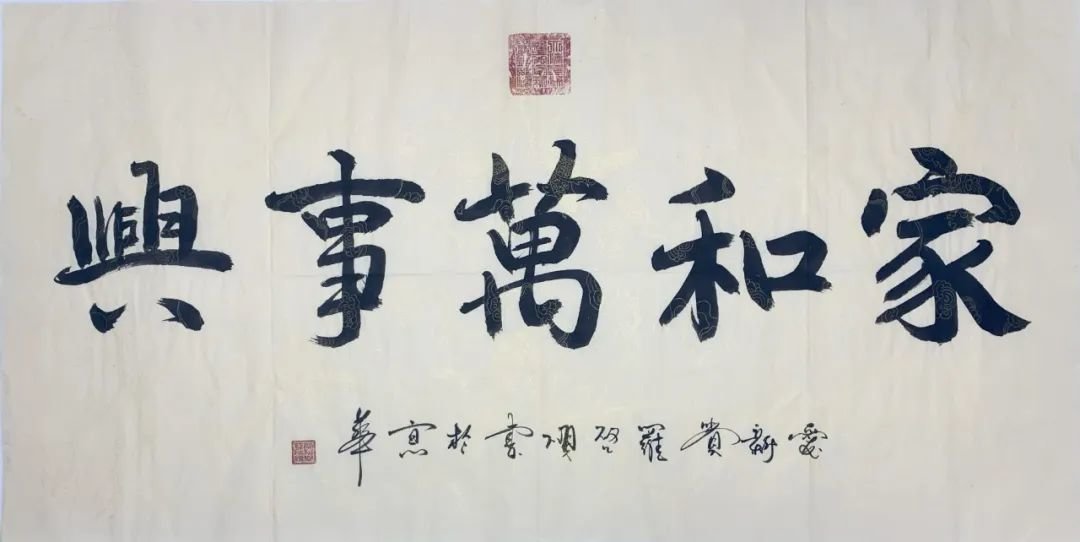 家和萬事興
愛新覺羅啓頊書於京華